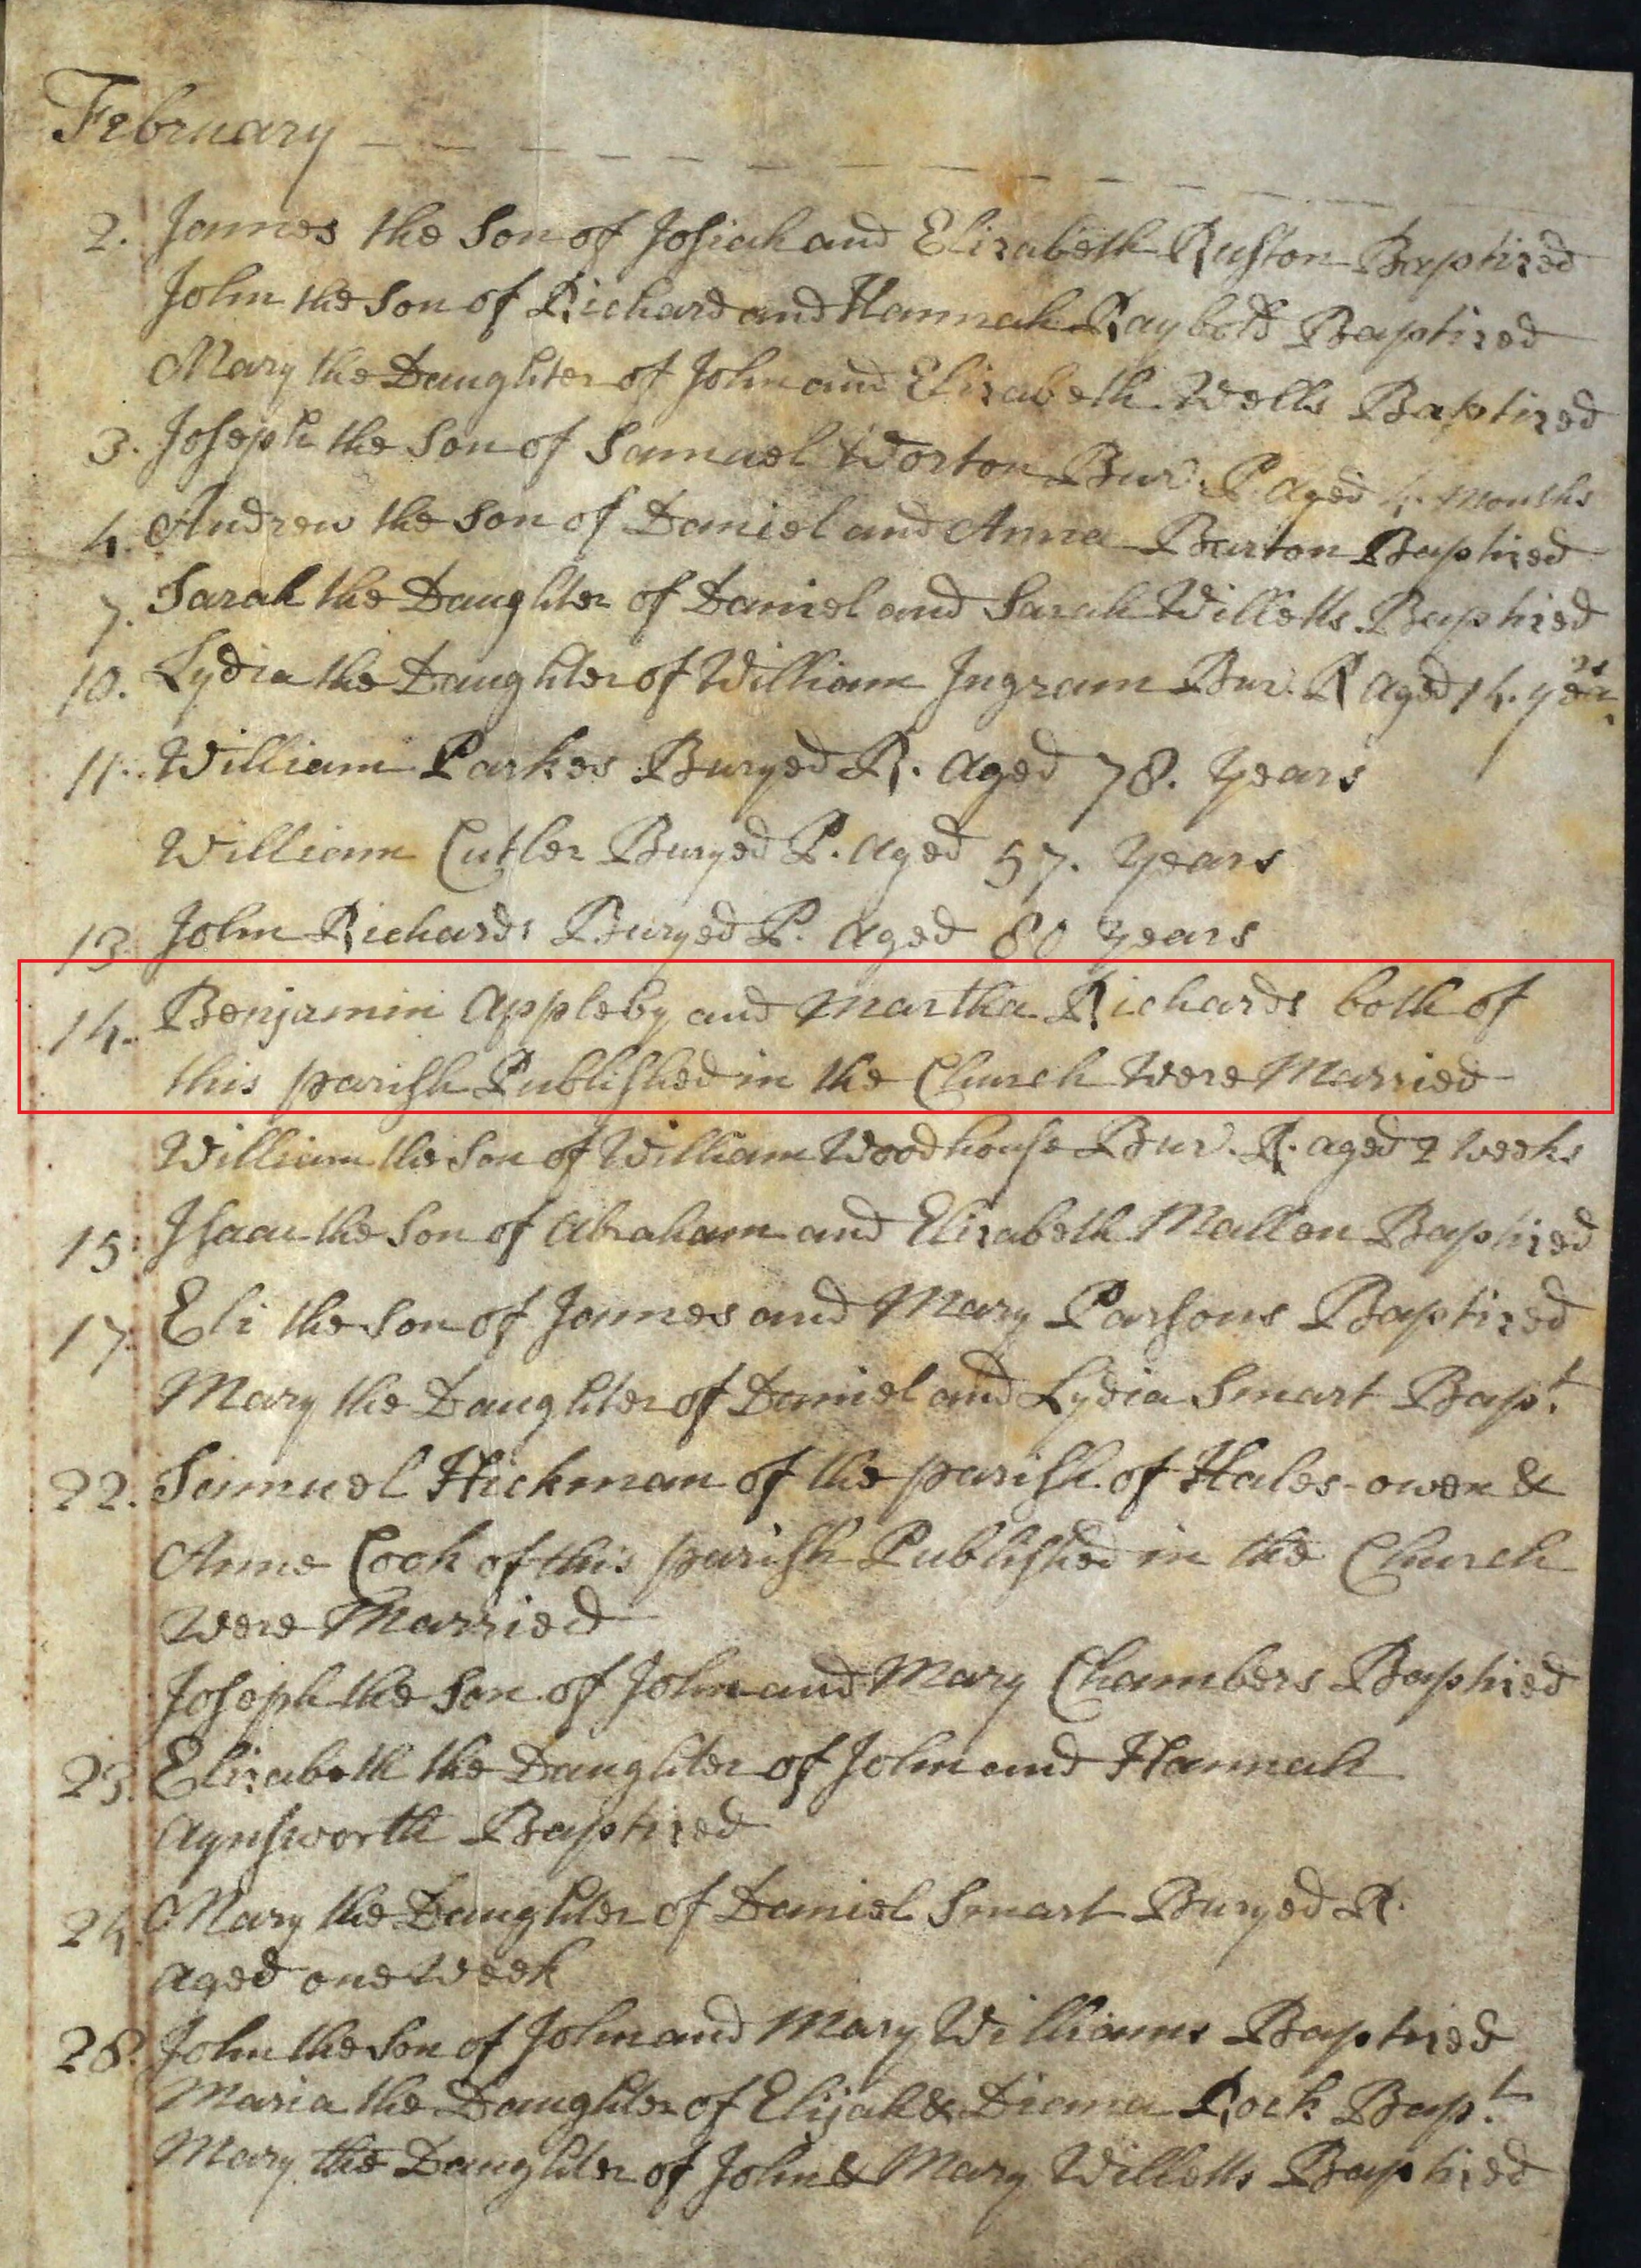 February
2. James the Son of Josiah and Elizabeth Ruston Baptized
John the Son of Richard and Hannah Raybold Baptized
Mary the Daughter of John and Elizabeth Wells Baptized
3. Joseph the Son of Samuel Worton Bur. P. aged 4. Months
4. Andrew the Son of Daniel and Anna Barton Baptized
7. Sarah the Daughter of Daniel and Sarah Willetts Baptized
10. Lydia the Daughter of William Ingram Bur. R aged 14. years
11. William Parkes Buryed R. aged 78. years
William Cutler Buryed P. aged 57. years
13. John Richards Buryed P. aged 80 years
14. Benjamin Appleby and Martha Richards both of
this parish Published in the Church Were Married
William the Son of William Woodhouse Bur. R. aged 2 weeks
15. Isaac the Son of Abraham and Elizabeth Mallen Baptized
17. Eli the Son of James and Mary Parsons Baptized
Mary the Daughter of Daniel and Lydia Smart Bapt.
22. Samuel Hickman of the parish of Hales-owen &
Anne Cook of this parish Published in the Church
Were Married
Joseph the Son of John and Mary Chambers Baptized
23. Elizabeth the Daughter of John and Hannah
Aynsworth Baptized
24. Mary the Daughter of Daniel Smart Buryed R.
aged one Week
28. John the Son of John and Mary Williams Baptized
Maria the Daughter of Elijah & Diana Rock Bapt.
Mary the Daughter of John & Mary Willetts Baptized